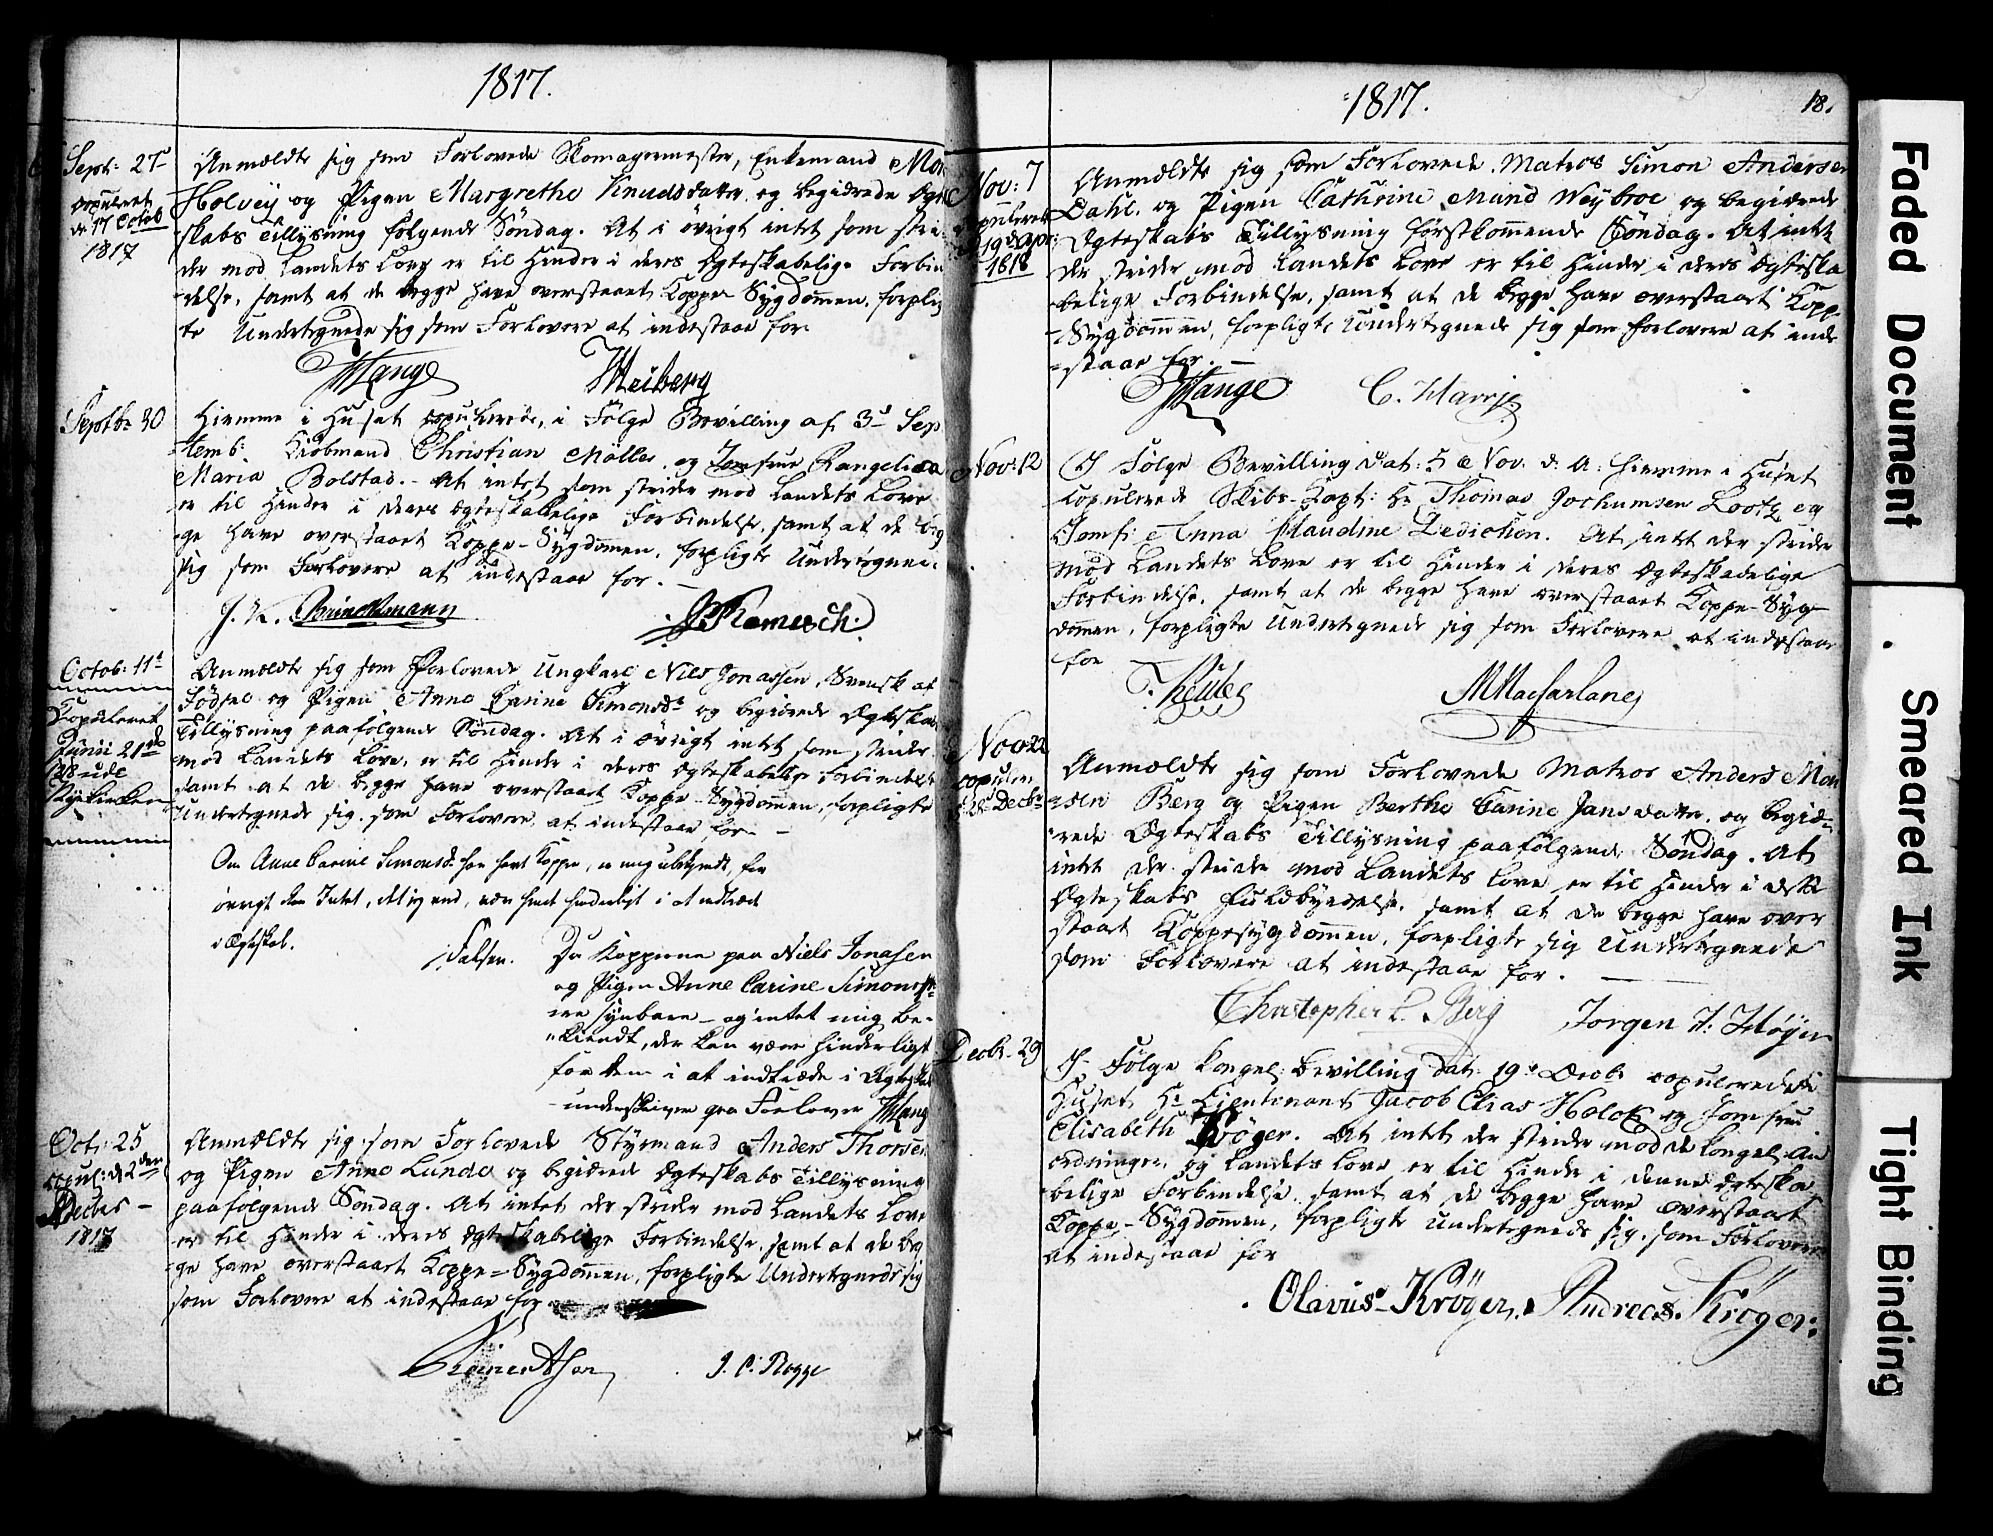 1817.
Sept: 27d
copuleret
d: 17 Octob
1817
Anmeldte sig som Forlovede Skomagermester, Enkemand
Holvey og Pigen Margrethe Knudsdatter, og begierede Ægte
skabs Tillysning følgende Söndag. At i övrigt intet som stri-
der mod Landets Love er til Hinder i deres Ægteskabelige Forbin
delse, samt at de begge have overstaaet Koppe Sygdommen, forplig
te Undertegnede sig som Forlovere at indestaae for.
Heiberg
Septbr 30
Hiemme i Huset copulerede, i Følge Bevilling af 3d Sep
temb: Kiöbmand Christian Möller og Jomfrue Rangelia
Maria Bolstad. - At intet som strider mod Landets Love
er til Hinder i deres Ægteskabelige Forbindelse, samt at de beg
ge have overstaaet Koppe-Sygdomen, forpligte Undertegnede
sig som Forlovere at indestaae for. -
J. K. Brinckmann
Octob: 11t
Copuleret
Junii 21de
Anmeldte sig som Forlovede Ungkarl Nils Jonassen, Svensk af
Födsel og Pigen Anne Carine Simonsdr og begierede Ægteskabs
Tillysning paafølgende Söndag. At i övrigt intet som strider
mod Landets Love, er til Hinder i deres Ægteskabelige Forbindelse
samt at de begge have overstaaet Koppe-Sygdommen, forpligte
Undertegnede sig som Forlovere at indestaae for. -
Om Anne Carine Simonsdr har havt Kopper, er mig ubekjendt, for
övrigt
i Ægteskab.
Da Kopperne paa Niels Jonasen
og Pigen Anne Carine Simonsdr
ere synbare - og intet mig be-
kiendt, der kan være hinderligt
for dem i at indtræde i Ægteskab
underskriver som Forlover
Oct: 25
copul: d: 2den
Decbr -
1817
Anmeldte sig som Forlovede Styrmand Anders Thorsen
og Pigen Anne Lunde og begierede Ægteskabs Tillysning
paafølgende Söndag. At intet der strider mod Landets Love
er til Hinder i deres Ægteskabelige Forbindelse, samt at de beg
ge have overstaaet Koppe-Sygdommen, forpligte Undertegnede sig
som Forlovere at indestaae for.
1817.
18.
Nov: 7
1818
Anmeldte sig som Forlovede Matros Simon Andersen
Dahl, og Pigen Cathrine Mund Weybroe og begierede
Ægteskabs Tillysning förstkommende Söndag. At intet
der strider mod Landets Love er til Hinder i deres Ægteska
belige Forbindelse, samt at de begge have overstaaet Kopp-
Sygdommen, forpligte Undertegnede sig som Forlovere at inde
staae for. -
Nov: 12
I Følge Bevilling dat: 5 Nov. d: A: hiemme i Huset
copulerede Skibs-Capt: Hr Thomas Jochumsen Lootz og
Jomfr Anna Claudine Dedichen. At intet der strider
mod Landets Love er til Hinder i deres Ægteskabelige
Forbindelse, samt at de begge have overstaaet Koppe-Syg-
dommen, forpligte Undertegnede sig som Forlovere at indestaae
for
M Macfarlane
Nov 22
copuleret
28 Decbr
Anmeldte sig som Forlovede Matros Anders Mon
sen Berg og Pigen Berthe Carine Jansdatter, og begie-
rede Ægteskabs Tillysning paafølgende Söndag. At
intet der strider mod Landets Love er til Hinder i dette
Ægteskabs Fuldbyrdelse, samt at de begge have over
staaet Koppesygdommen, forpligte sig Undertegnede
som Forlovere at indestaae for. -
Christopher Berg
Jorgen
Decbr 29
I Følge kongel: Bevilling dat: 19de Decbr copulerede i
Huset Hr Lieutenant Jacob Elias Holck og Jomfrue
Elisabeth Kröger. At intet der strider mod de kongel: An
ordninger og Landets Love er til Hinder i denne Ægteska
belige Forbindelse samt at de begge have overstaaet
Koppe-Sygdommen, forpligte Undertegnede sig som Forlovere
at indestaae for
Olavus Kröger. Andreas Kröger:
Faded Document
Smeared Ink
Tight Binding